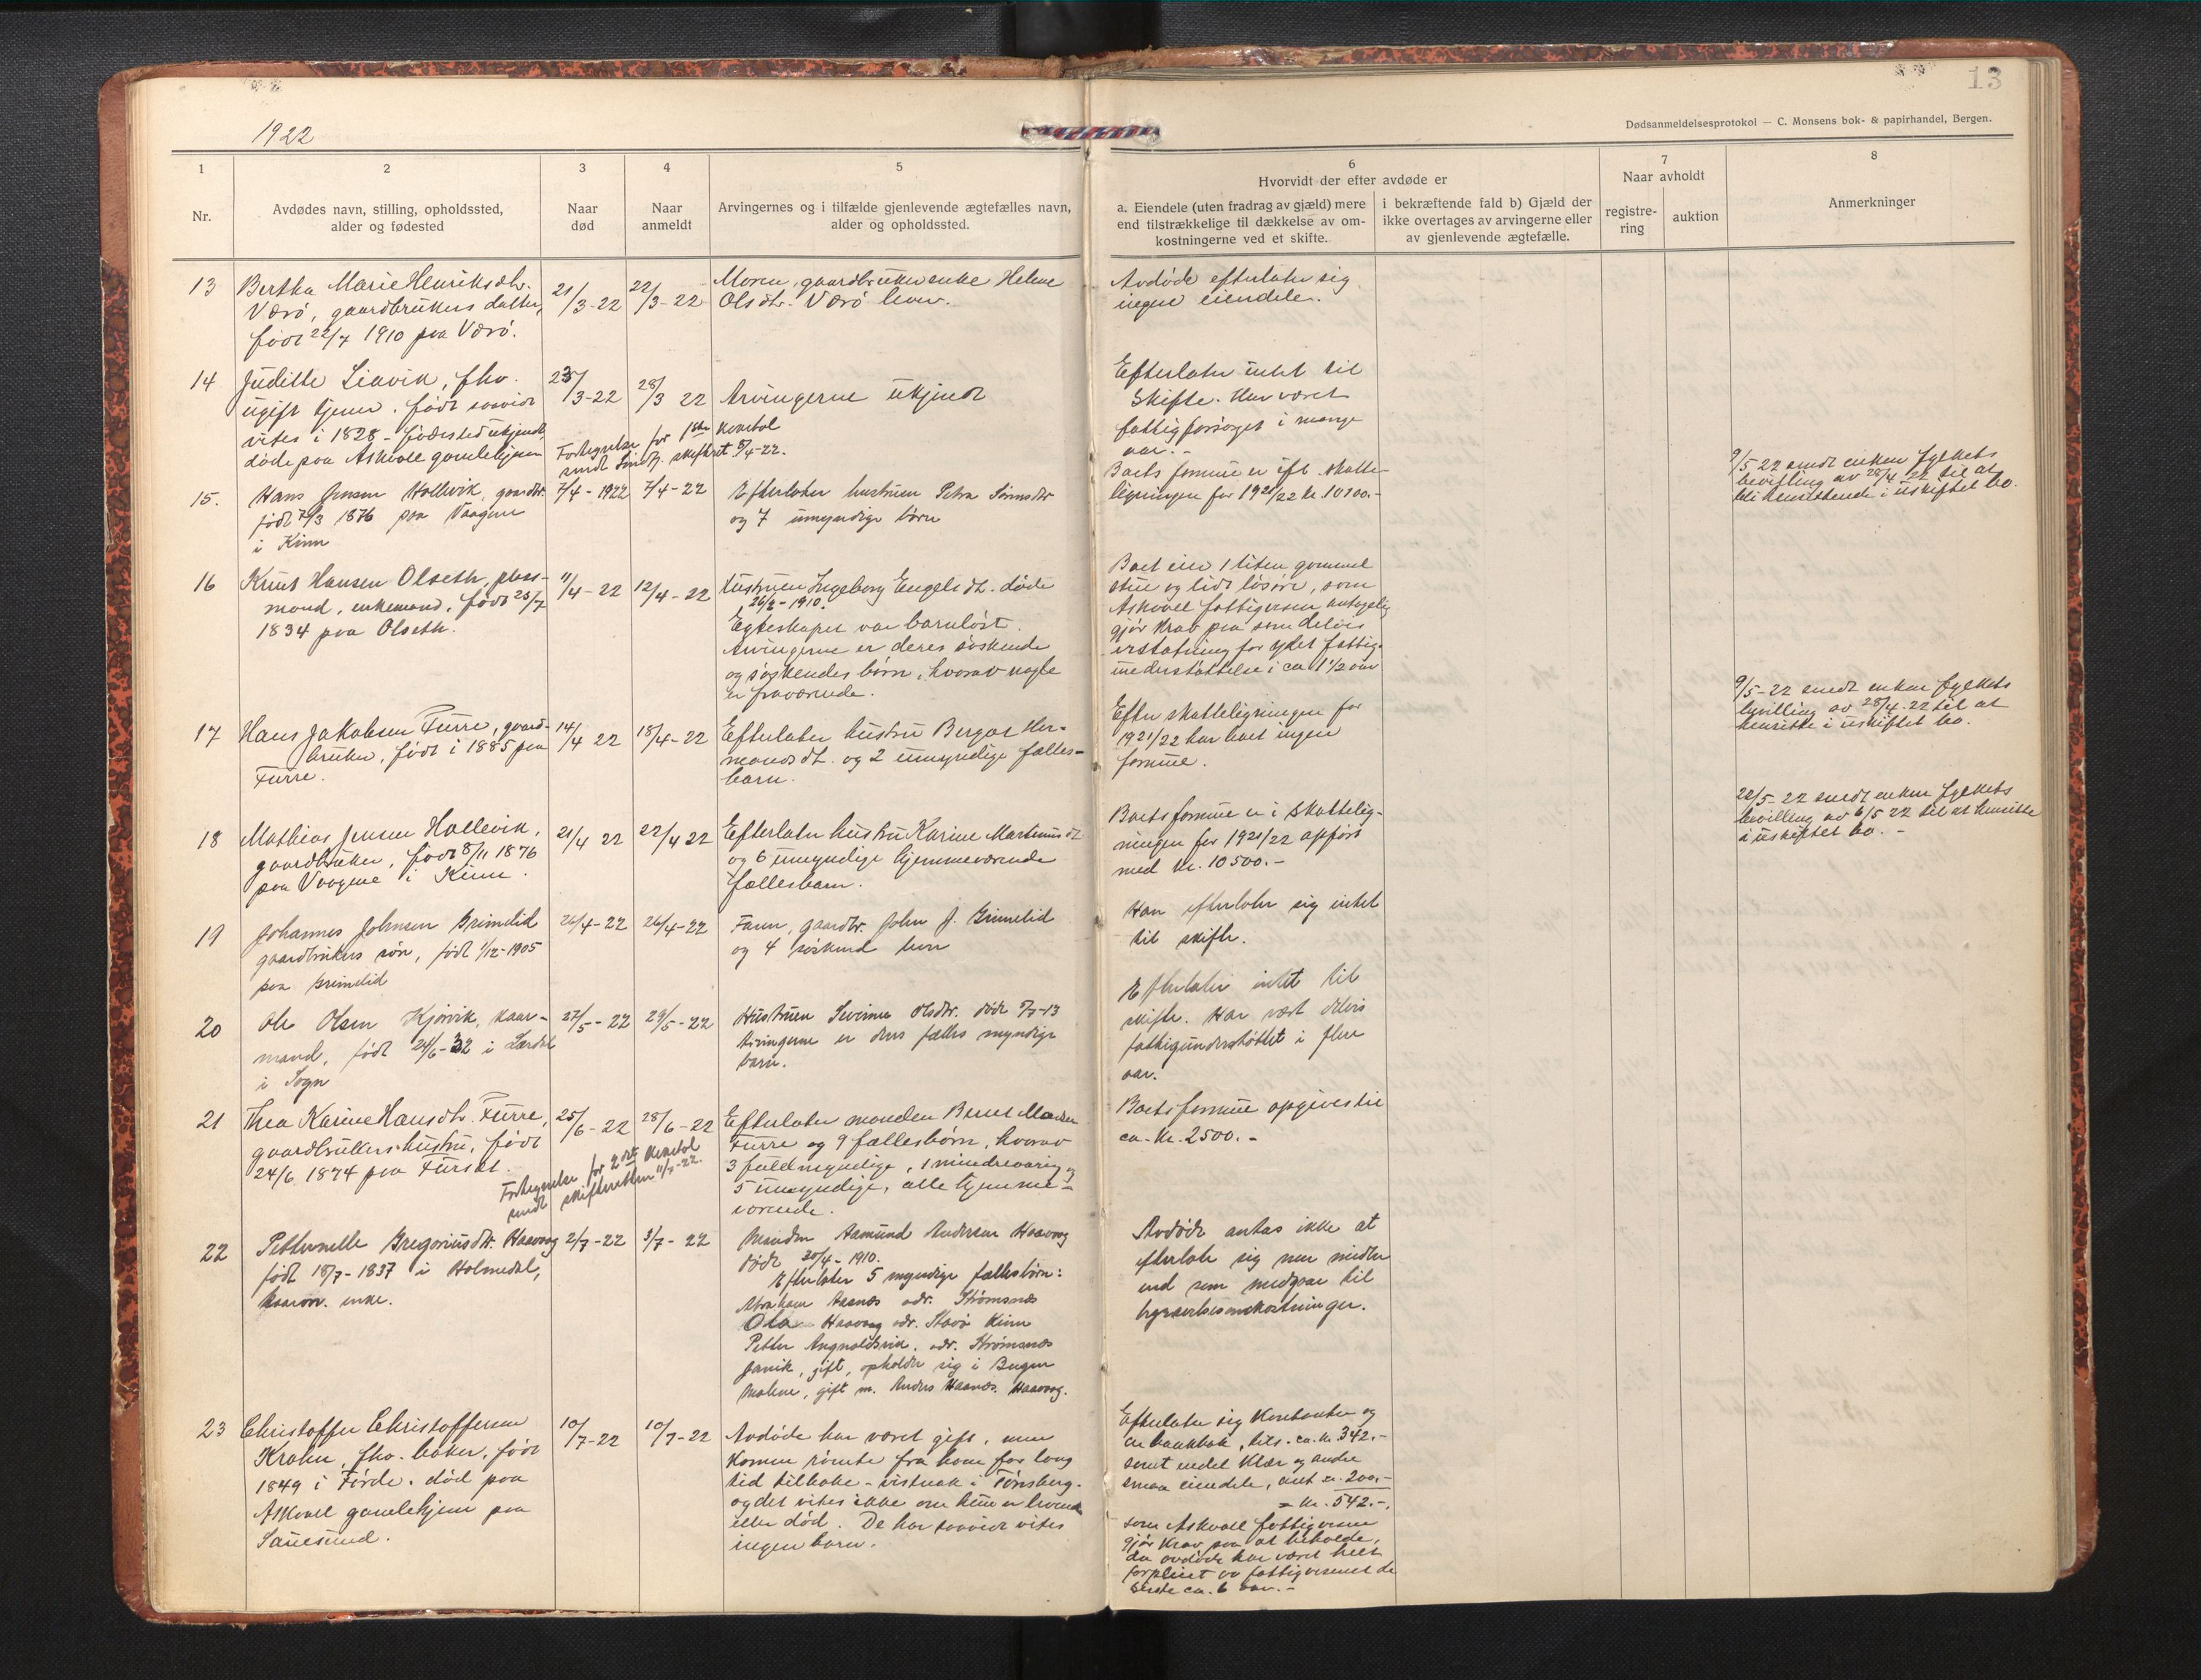 13
1922
Dødsanmeldelsesprotokol — C. Monsens bok- & papirhandel, Bergen.
1
Nr.
2
Avdødes navn, stilling, opholdssted,
alder og fødested
3
Naar
død
4
Naar
anmeldt
5
Arvingernes og i tilfælde gjenlevende ægtefælles navn,
alder og opholdssted.
6
Hvorvidt der efter avdøde er
a. Eiendele (uten fradrag av gjæld) mere
end tilstrækkelige til dækkelse av om-
kostningerne ved et skifte.
i bekræftende fald b) Gjæld der
ikke overtages av arvingerne eller
av gjenlevende ægtefælle.
7
Naar avholdt
registre-
ring
auktion
8
Anmerkninger
13
Bertha Marie Henriksdtr.
Værö, gaardbrukers datter,
född 22/7 1910 paa Værö.
21/3-22
22/3-22
Moren, gaardbrukerenke Helene
Olsdtr. Værö lever.
Avdöde efterlater sig
ingen eiendele.
14
Juditte Liavik, fhv.
ugift tjener. född saavidt
vites i 1828 - födested ukjendt,
döde paa Askvoll gamlehjem
23/3-22
28/3 22
Arvingerne ukjendt
Fortegnelse for 1ste kvartal
sendt Sundf. skifteret 5/4-22.
Efterlater intet til
skifte. Har været
fattigforsörget i mange
aar. -
15.
Hans Jensen Hollevik, gaardbr.
född 7/3 1876 paa Vaagene
i Kinn
7/4 - 1922
7/4-22
Efterlater hustruen Petra Simonsdtr
og 7 umyndige börn
Boets formue er ifl. skatte-
ligningen for 1921/22 kr 10100.-
9/5 22 sendt enken fylkets
bevilling av 28/4 22 til at
bli hensittende i uskiftet bo.
16
Knut Hansen Olseth, plass-
mand, enkemand, född 25/7
1834 paa Olseth.
11/4 - 22
12/4 - 22
Hustruen Ingeborg Engelsdtr. döde
26/2 - 1910.
Egteskapet var barnlöst.
Arvingerne er deres söskende
og söskendes börn, hvorav nogle
er fraværende.
Boet eier 1 liten gammel
stue og lidt lösöre, som
Askvoll fattigvesen antagelig
gjör krav paa som delvis
erstatning for ydet fattig-
understöttelse i ca 1 1/2 aar
17
Hans Jakobsen Furre, gaard-
bruker, född i 1885 paa
Furre.
14/4 22
18/4-22
Efterlater hustru Bergot Her-
mansdtr. og 2 umyndige fælles-
barn.
Efter skatteligningen for
1921/22 har boet ingen
formue.
9/5-22 sendt enken fylkets
bevilling av 28/4-22 til at
hensitte i uskiftet bo.
18
Mathias Jensen Hollevik,
gaardbruker, född 8/11 1876
paa Vaagene i Kinn.
21/4 22
22/4 22
Efterlater hustru Karine Martinusdtr
og 6 umyndige hjemmeværende
fællesbarn.
Boets formue er i skattelig-
ningen for 1921/22 opfört
med kr. 10500.-
22/5-22 sendt enken fylkets
bevilling av 6/5 22 til at hensitte
i uskiftet bo. -
19
Johannes Johnsen Grimelid
gaardbrukers sön, född 1/12-1905
paa Grimelid
26/4-22
26/4-22
Faren, gaardbr. John J. Grimelid
og 4 söskend lever
Han efterlater sig intet
til skifte.
20
Ole Olsen Kjörvik, kaar-
mand, född 24/6-32 i Lærdal
i Sogn
27/5 - 22
29/5 - 22
Hustruen Severine Olsdtr. döde 7/7-13
Arvingerne er deres fælles myndige
barn.
Efterlater intet til
skifte. Har vært delvis
fattigunderstöttet i flere
aar.
21
Thea Karine Hansdtr. Furre,
gaardbrukers hustru, född
24/6 1874 paa Fursæt.
25/6 - 22
28/6 - 22
Efterlater manden Bernt Madsen
Furre og 9 fællesbörn, hvorav
3 fuldmyndige, 1 mindreaarig og
5 umyndige, alle hjemme-
værende.
Fortegnelse for 2det kvartal
sendt skifteretten 11/7-22.
Boets formue opgives til
ca. kr. 2500. -
22
Petternelle Gregoriusdtr. Haavaag
född 18/7-1837 i Holmedal,
kaarm. enke.
2/7-22
3/7-22
Manden Aamund Andersen Haavaag
döde 20/4 - 1910.
Efterlater 5 myndige fællesbörn:
Abraham Aasnæs adr. Strömsnæs
Ola Haavaag adr. Kinn
Petter adr. Strömsnæs
gift, opholder sig i Bergen
Malene, gift m. Anders Haavaag.
Avdöde antas ikke at
efterlate sig mer midler
end som medgaar til
begravelsesomkostninger.
23
Christoffer Christoffersen
Krohn, fhv. baker, född
1849 i Förde. död paa
Askvoll gamlehjem paa
Sauesund.
10/7-22
10/7-22
Avdöde har været gift, men
konen römte fra ham for lang
tid tilbake - vistnok i Tönsberg.
og det vites ikke om hun er levende
eller död. De har saavidt vites
ingen barn.
Efterlater sig kontanter og
en bankbok, tils. ca. kr. 342.-
samt endel klær og andre
smaa eiendele, anl. kr. 200.-
= kr. 542.-,
som Askvoll fattigvesen
gjör krav paa at beholde,
da avdöde har været helt
forpleiet av fattigvesenet de
siste ca. 6 aar. -